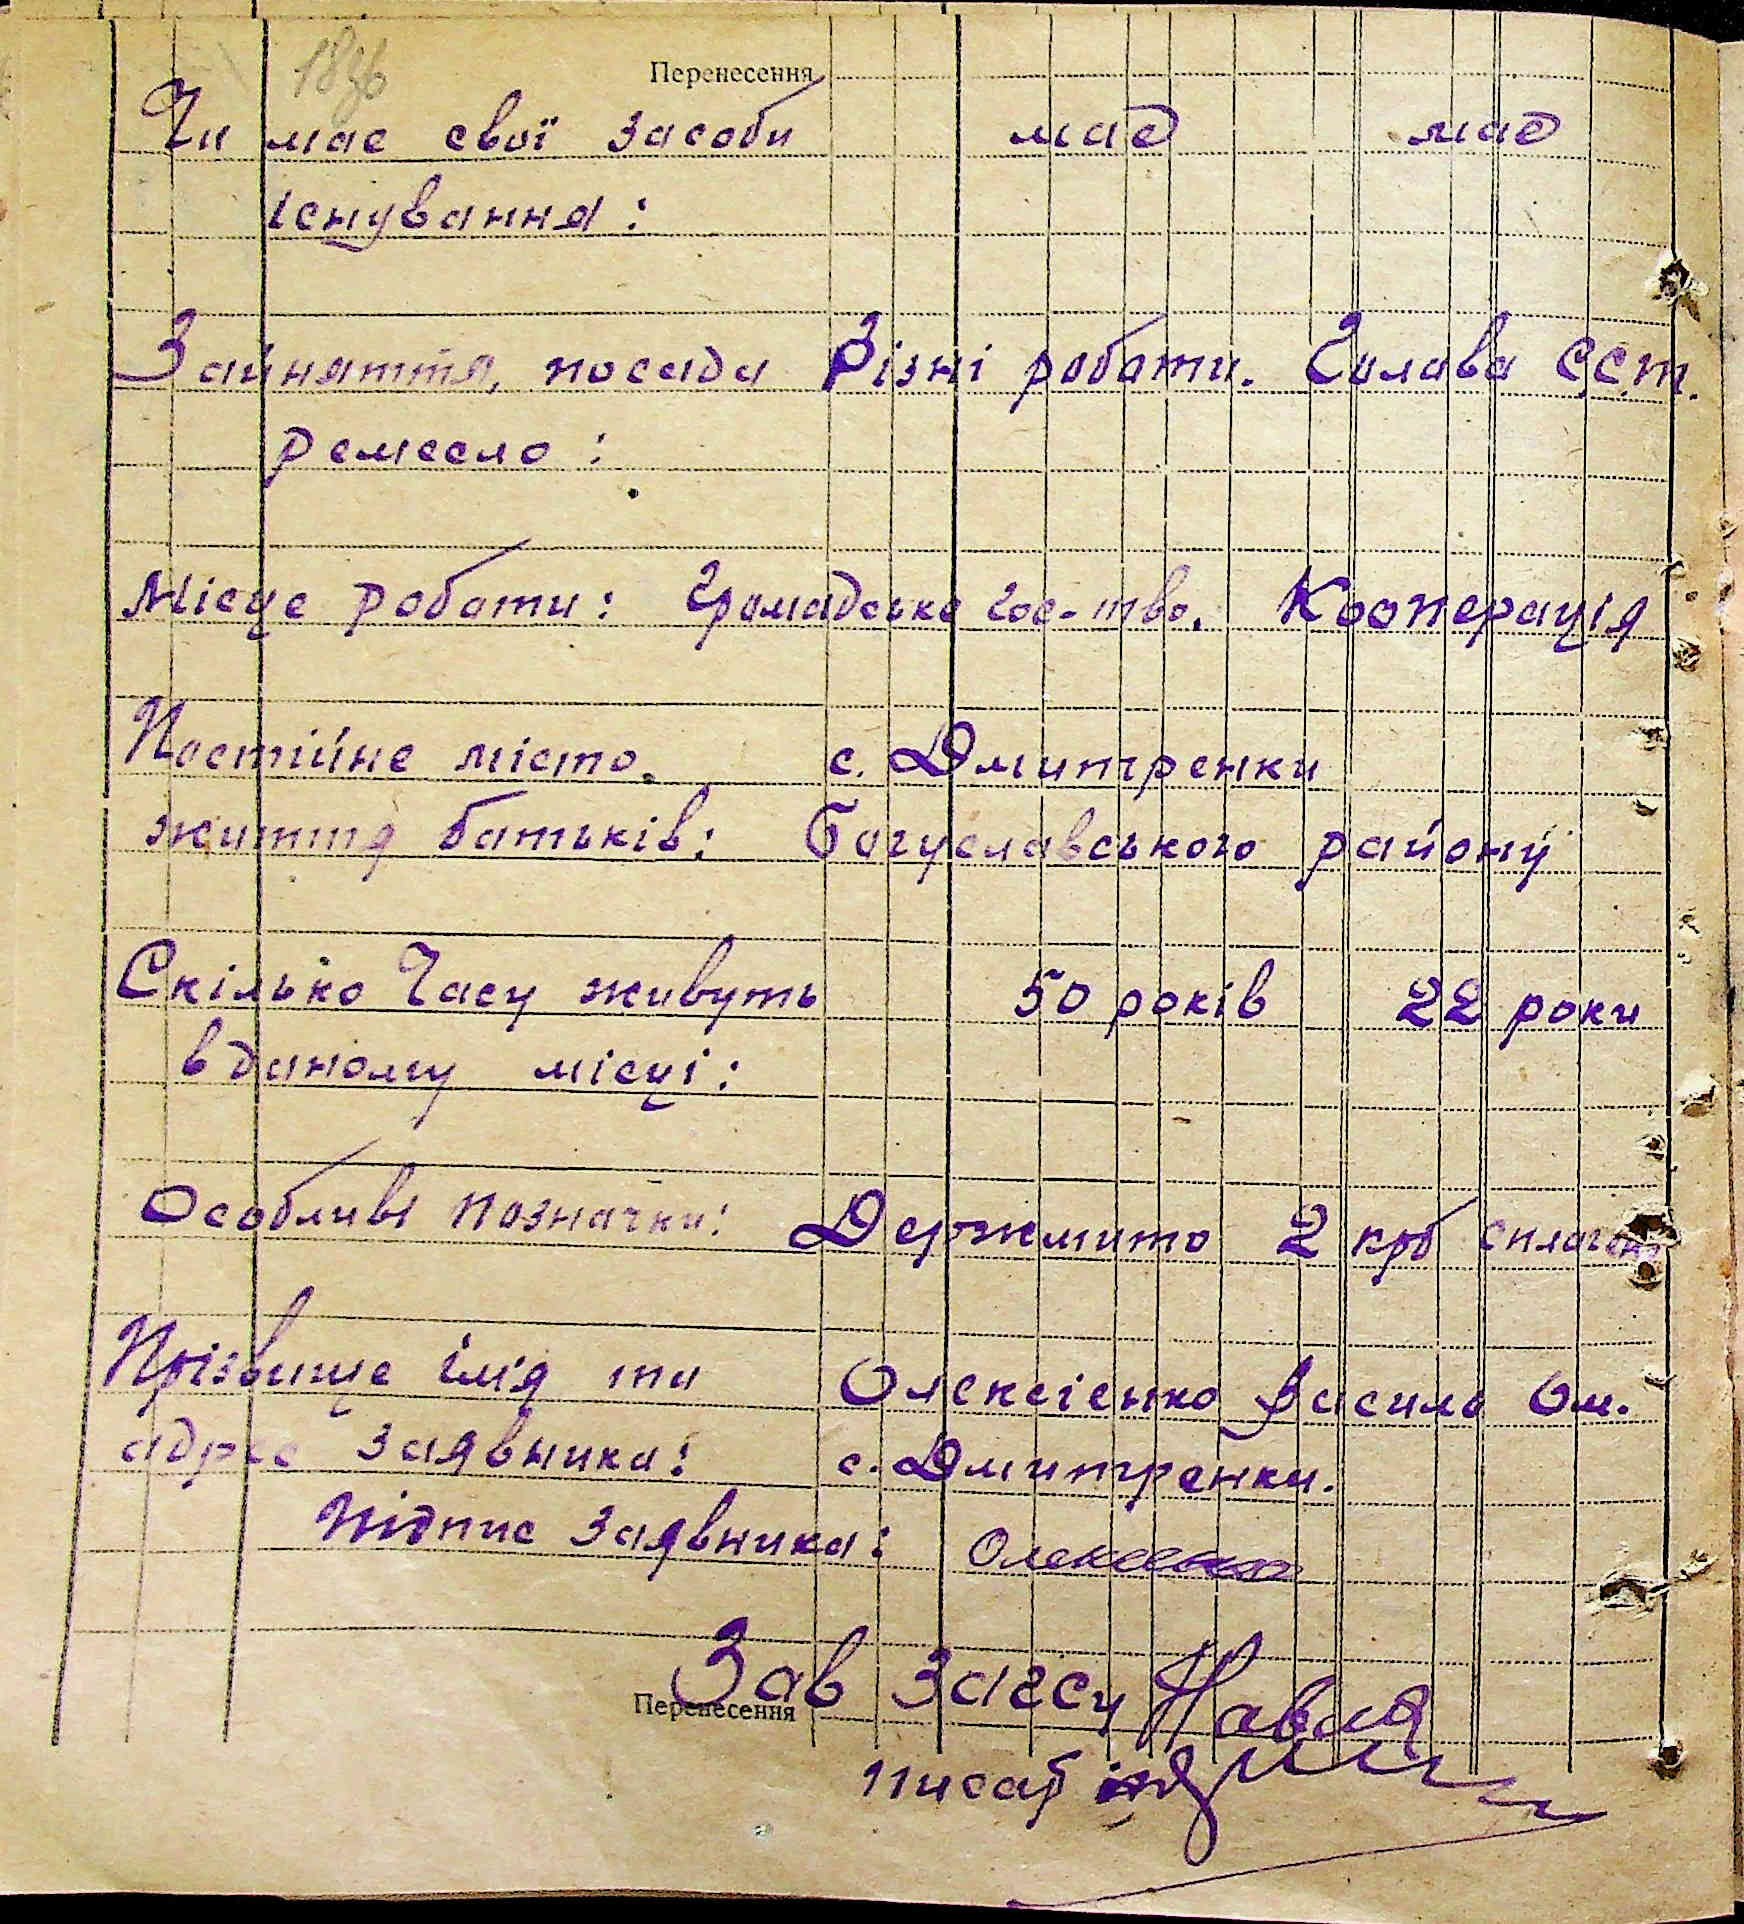 18зв
Перенесення
Чи має свої засоби має має
існування:
Зайняття, посада Різні роботи. Голова ССТ.
ремесло:
Місце роботи: Громадське гос-тво. Кооперація
Постійне місто с. Дмитренки
життя батьків: Богуславського району
Скілько часу живуть 50 років 22 роки
в даному місці:
Особливі позначки: Держмито 2 крб
Прізвище ім'я та Олексієнко Василь Ом.
адрес заявника: с. Дмитренки.
Підпис заявника: Олексієнко
Зав загсу
Перенесення
писав